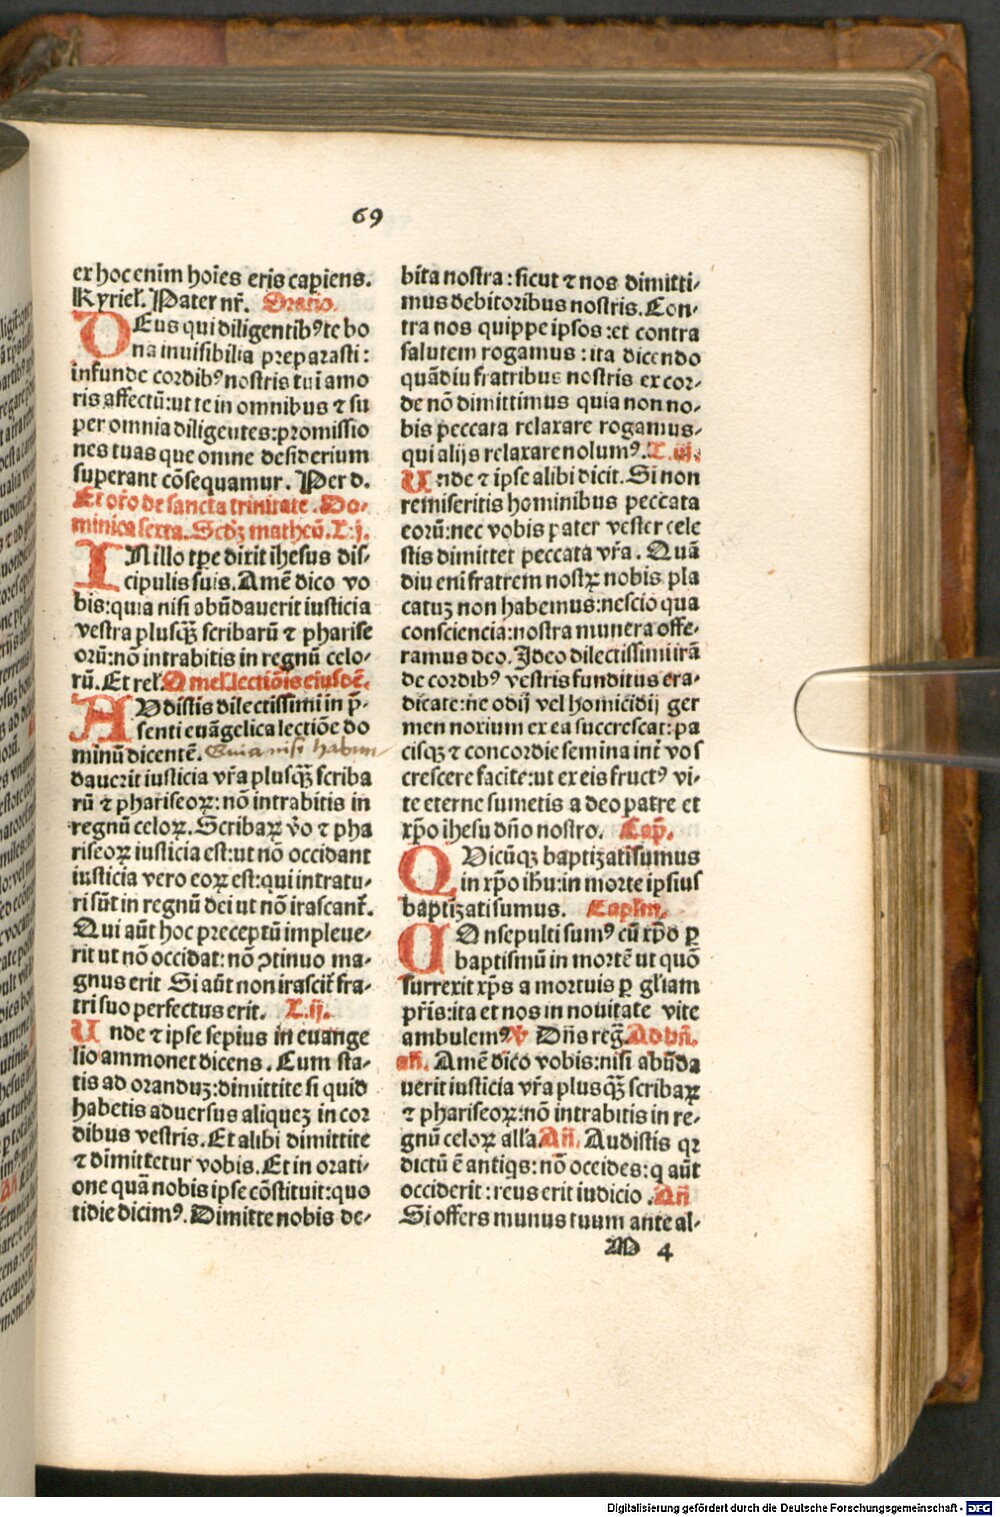 69
ex hoc enim hoīes eris capiens.
Kyriel. Pater nr̄. Oratio.
DEus qui diligentibꝰ te bo
na inuisibilia preparasti:
infunde cordibꝰ nostris tui amo
ris affectū: ut te in omnibus ⁊ su
per omnia diligentes: promissio
nes tuas que omne desiderium
superant cōsequamur. Per d.
Et or̄o de sancta trinitate. Do-
minica sexta. Scd'ꝫ matheū. L.j.
IN illo tp̄e dixit ih̄esus dis-
cipulis suis. Amē dico vo
bis: quia nisi abūdauerit iusticia
vestra plusqꝫ̄ scribarū ⁊ pharise
orū: nō intrabitis in regnū celo-
rū. Et rel'. Omel. lectiōis eiusdē.
AVdistis dilectissimi in p̄-
senti euāgelica lectiōe do
minū dicentē. Quia nisi habun-
dauerit iusticia vr̄a plusqꝫ̄ scriba
rū ⁊ phariseoꝝ: nō intrabitis in
regnū celoꝝ. Scribaꝝ v̄o ⁊ pha
riseoꝝ iusticia est: ut nō occidant
iusticia vero eoꝝ est: qui intratu-
ri sūt in regnū dei ut nō irascant̄.
Qui aūt hoc preceptū impleue-
rit ut nō occidat: nō ↄtinuo ma-
gnus erit Si aūt non irascit̄ fra-
tri suo perfectus erit. L.ij.
Unde ⁊ ipse sepius in euange
lio ammonet dicens. Cum sta-
tis ad oranduꝫ: dimittite si quid
habetis aduersus aliqueꝫ in cor
dibus vestris. Et alibi dimittite
⁊ dimittetur vobis. Et in orati-
one quā nobis ipse cōstituit: quo
tidie dicimꝰ. Dimitte nobis de-
bita nostra: sicut ⁊ nos dimitti-
mus debitoribus nostris. Con-
tra nos quippe ipsos: et contra
salutem rogamus: ita dicendo
quādiu fratribus nostris ex cor-
de nō dimittimus quia non no-
bis peccata relaxare rogamus-
qui alijs relaxare nolumꝰ. L.iij.
Unde ⁊ ipse alibi dicit. Si non
remiseritis hominibus peccata
eorū: nec vobis pater vester cele
stis dimittet peccata vr̄a. Quā
diu eni fratrem nostꝝ nobis pla
catuꝫ non habemus: nescio qua
consciencia: nostra munera offe-
ramus deo. Ideo dilectissimi irā
de cordibꝰ vestris funditus era-
dicate: ne odij vel homicidij ger
men noxium ex ea succrescat: pa
cisqꝫ ⁊ concordie semina int̄ vos
crescere facite: ut ex eis fructꝰ vi-
te eterne sumetis a deo patre et
xp̄o ihesu dn̄o nostro. Cap̄.
QVicūqꝫ baptizati sumus
in xp̄o ih̄u: in morte ipsius
baptizati sumus. Capl'm.
COnsepulti sumꝰ cū xp̄o ꝑ
baptismū in mortē ut quō
surrexit xp̄s a mortuis ꝑ gl'iam
pr̄is: ita et nos in nouitate vite
ambulemꝰ ℣ Dn̄s reḡ. Ad bn̄.
an̄. Amē dico vobis: nisi abūda
uerit iusticia vr̄a plusqꝫ̄ scribaꝝ
⁊ phariseoꝝ: nō intrabitis in re-
gnū celoꝝ all'a. An̄. Audistis qꝛ
dictū ē antiqs: nō occides: q aūt
occiderit: reus erit iudicio. An̄
Si offers munus tuum ante al-
M 4
Digitalisierung gefördert durch die Deutsche Forschungsgemeinschaft - DFG